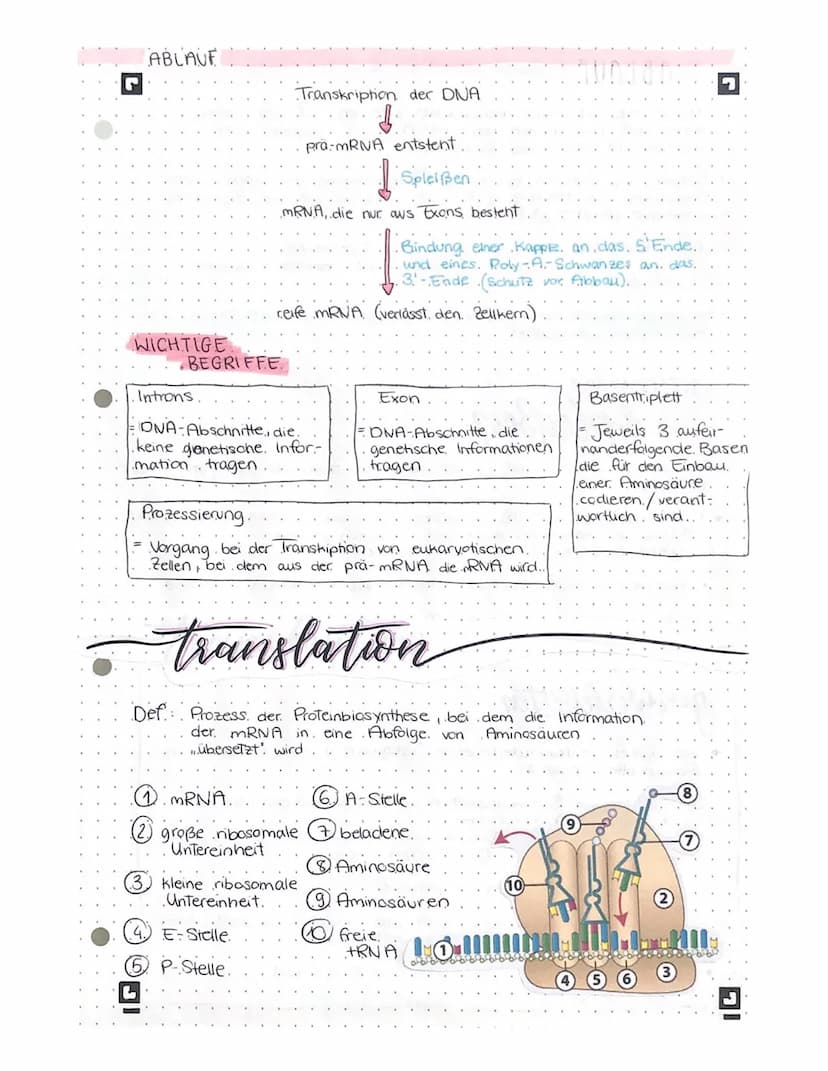 ABLAUF
Transkription der DNA
prä-mRNA entsteht.
Spleißen
mRNA, die nur aus Exons besteht
Bindung einer Kappe an das 5'Ende
und eines Poly-A-Schwanzes an das
3'-Ende (Schutz vor Abbau)
reife mRNA (verlässt den Zellkern)
WICHTIGE
BEGRIFFE
Introns
= DNA-Abschnitte, die
keine genetische Infor-
mation tragen
Exon
= DNA-Abschnitte, die
genetische Informationen
tragen
Basentriplett
= Jeweils 3 aufei-
nanderfolgende Basen
die für den Einbau
einer Aminosäure
codieren/verant-
wortlich sind.
Prozessierung
= Vorgang bei der Transkiption von eukaryotischen
Zellen, bei dem aus der prä-mRNA die mRNA wird.
translation
Def.: Prozess der Proteinbiosynthese, bei dem die Information
der mRNA in eine Abfolge von Aminosäuren
„übersetzt" wird
① mRNA
② große ribosomale
Untereinheit
③ kleine ribosomale
Untereinheit
④ E-Stelle
⑤ P-Stelle
⑥ A-Stelle
⑦ beladene
⑧ Aminosäure
⑨ Aminosäuren
⑩ freie
tRNA
8
9
7
10
2
1
4
5
6
3